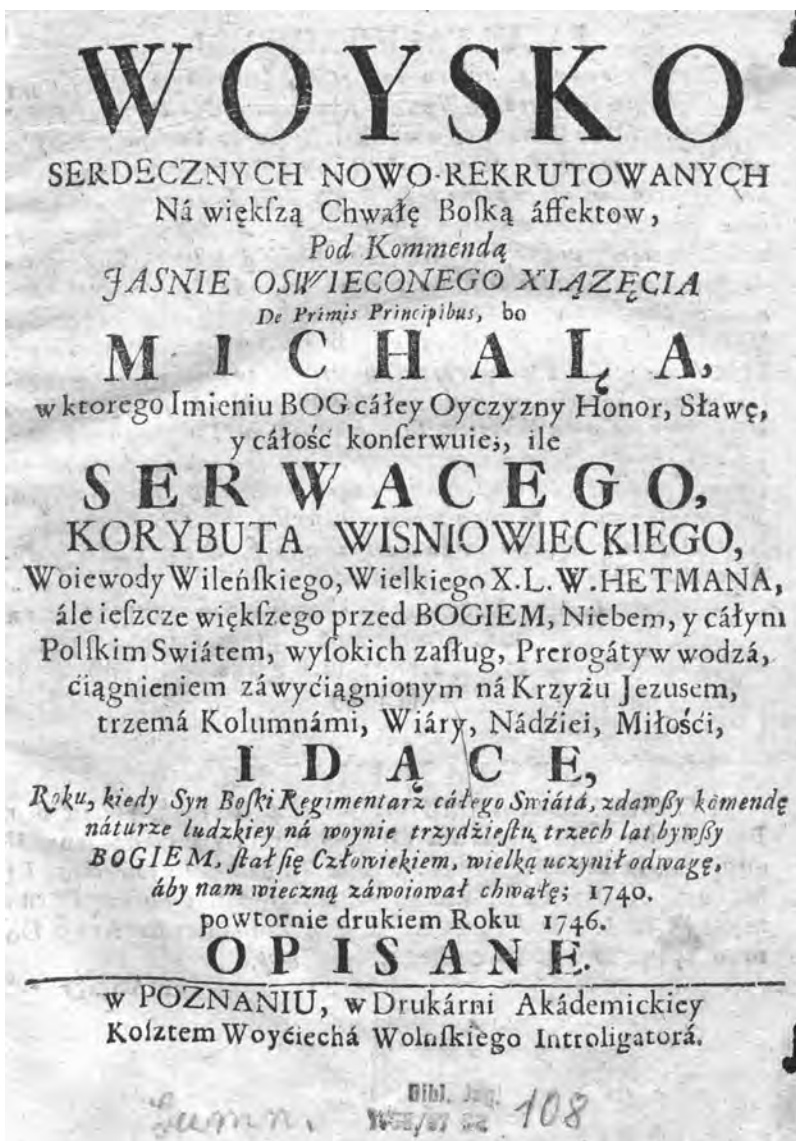 WOYSKO
SERDECZNYCH NOWO-REKRUTOWANYCH
Ná więkſzą Chwałę Boſką áffektow,
Pod Kommendą
JASNIE OSWIECONEGO XIĄZĘCIA
De Primis Principibus, bo
MICHAŁA,
w ktorego Imieniu BOG cáłey Oyczyzny Honor, Sławę,
y cáłość konſerwuie;, ile
SERWACEGO,
KORYBUTA WISNIOWIECKIEGO,
Woiewody Wileńſkiego, Wielkiego X.L.W. HETMANA,
ále ieſzcze więkſzego przed BOGIEM, Niebem, y cáłym
Polſkim Swiátem, wyſokich zaſług, Prerogátyw wodzá,
ćiągnieniem záwyćiągnionym ná Krzyżu Jezusem,
trzemá Kolumnámi, Wiáry, Nádźiei, Miłośći,
IDĄCE,
Roku, kiedy Syn Boſki Regimentarz cáłego Swiátá, zdawſzy komendę
náturze ludzkiey ná woynie trzydźieſtu trzech lat bywſzy
BOGIEM, ſtał ſię Człowiekiem, wielką uczynił odwagę,
áby nam wieczną záwoiował chwałę; 1740.
powtornie drukiem Roku 1746.
OPISANE.
w POZNANIU, w Drukárni Akádemickiey
Koſztem Woyćiechá Wolnſkiego Introligatorá.
Bibl. Jag.
108